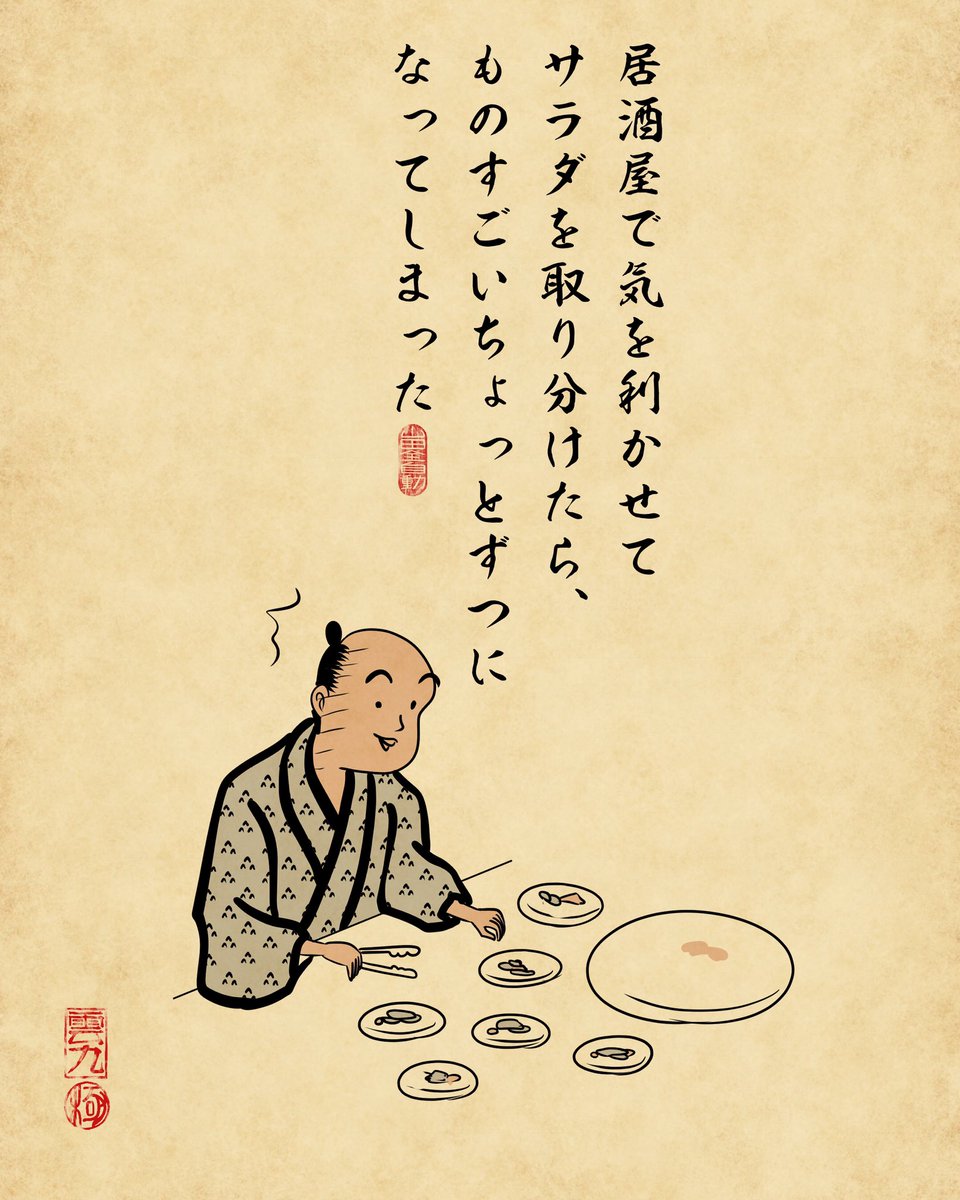 居酒屋で気を利かせて
サラダを取り分けたら、
ものすごいちょっとずつに
なってしまった